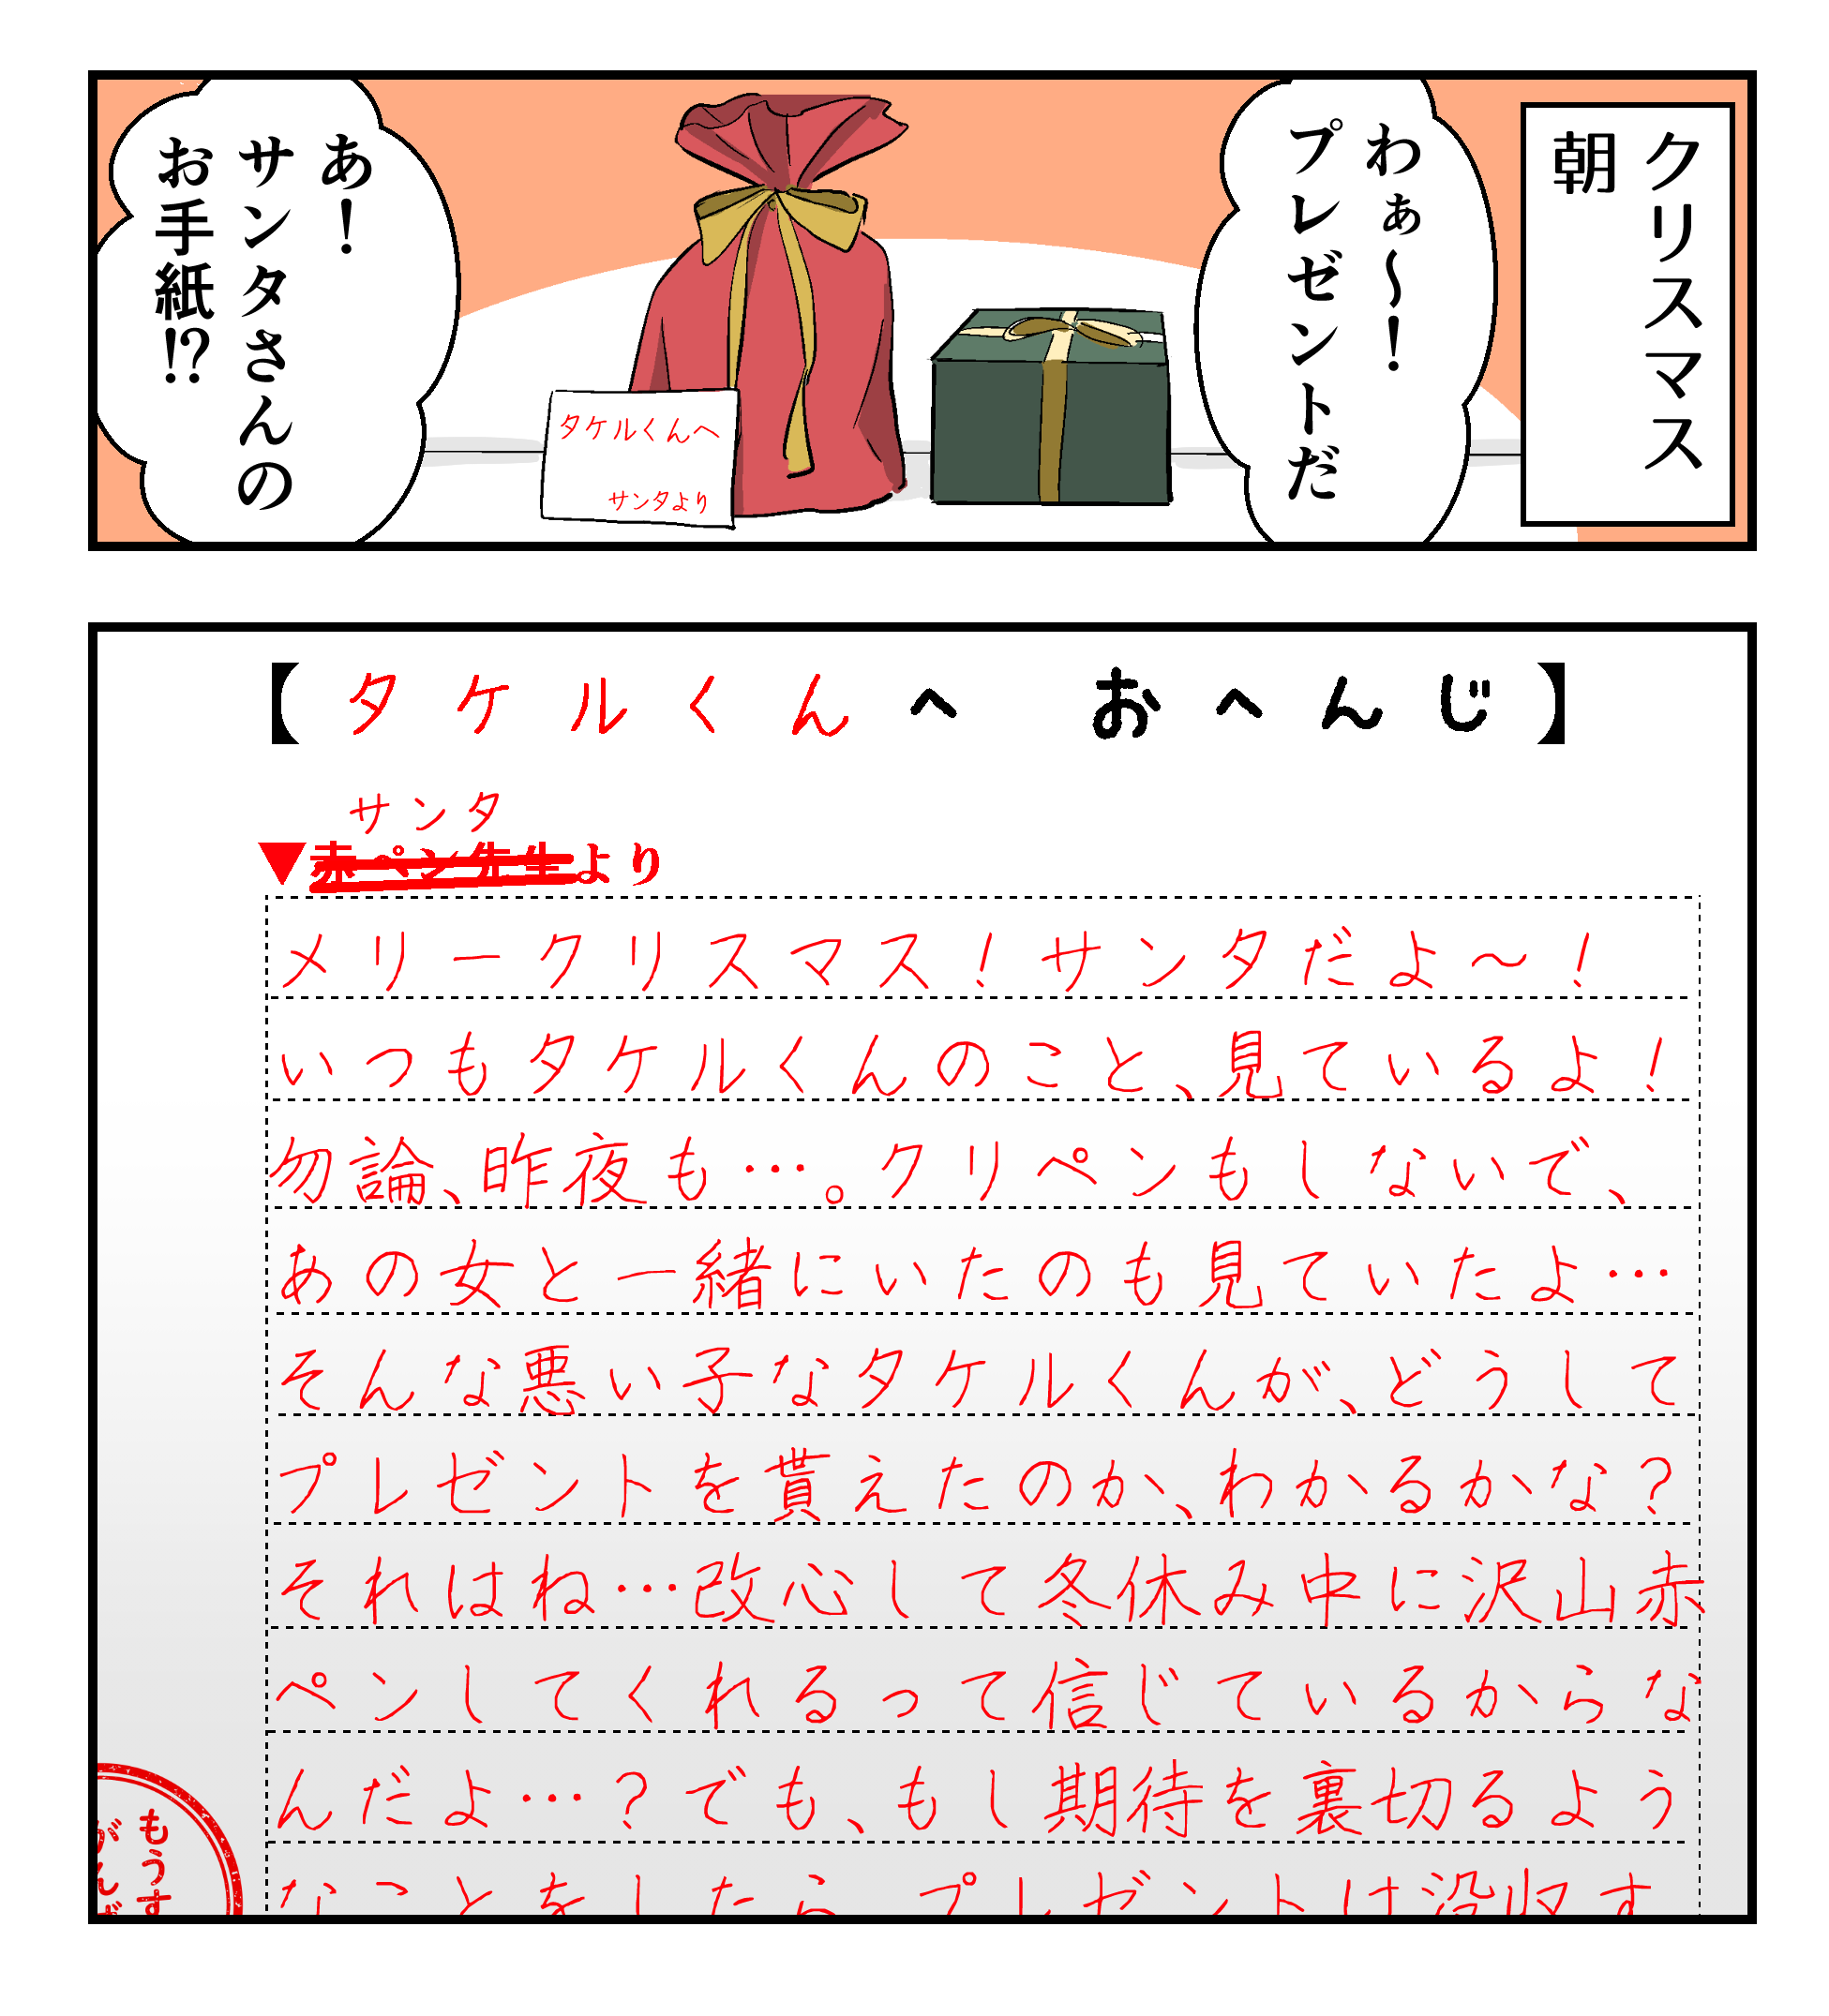 クリスマス
朝
わぁ〜！
プレゼントだ
あ！
サンタさんの
お手紙⁉
タケルくんへ
サンタより
【タケルくんへ　おへんじ】
サンタ
▼赤ペン先生より
メリークリスマス！サンタだよ〜！
いつもタケルくんのこと、見ているよ！
勿論、昨夜も…。クリペンもしないで、
あの女と一緒にいたのも見ていたよ…
そんな悪い子なタケルくんが、どうして
プレゼントを貰えたのか、わかるかな？
それはね…改心して冬休み中に沢山赤
ペンしてくれるって信じているからな
んだよ…？でも、もし期待を裏切るよう
なことをしたら、プレゼントは没収す
もうす
がんば